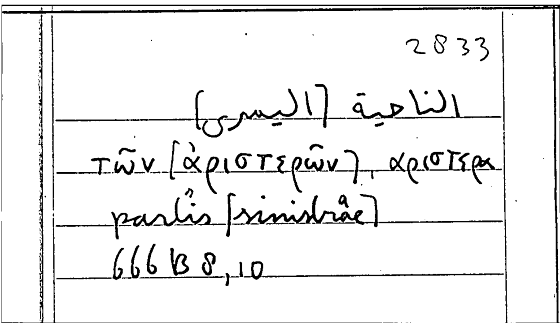 2833
الناحية [اليسرى]
τῶν [ἀριστερῶν], αριστερα
partis [sinistrae]
666 B 8, 10